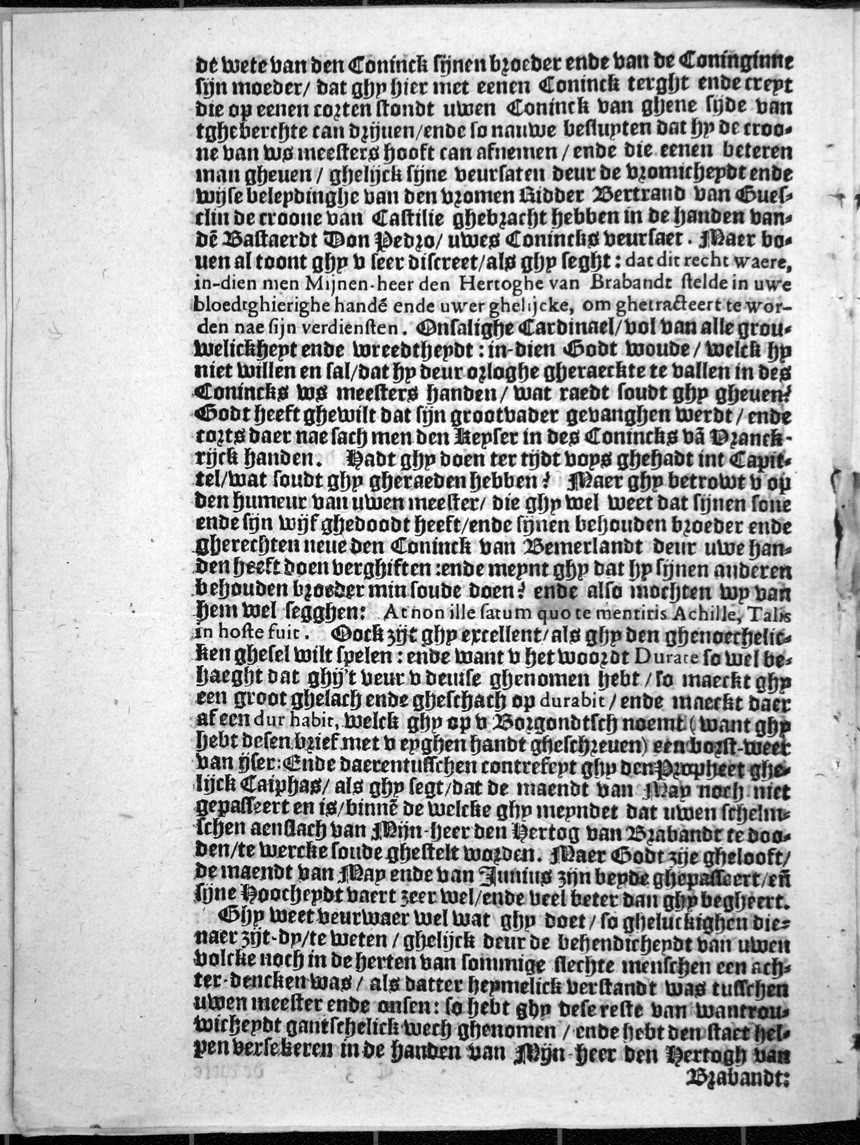 de wete van den Coninck sijnen broeder ende van de Coninginne
sijn moeder/ dat ghy hier met eenen Coninck terght ende creyt
die op eenen corten stondt uwen Coninck van ghene syde van
tgheberchte can drijuen/ende so nauwe besluyten dat hy de croo-
ne van ws meesters hooft can afnemen/ende die eenen beteren
man gheuen/ ghelijck sijne veursaten deur de vromicheydt ende
wijse beleydinghe van den vromen Ridder Bertrand van Gues-
clin de croone van Castilie ghebracht hebben in de handen van-
dē Bastaerdt Don Pedro/ uwes Conincks veursaet. Maer bo-
uen al toont ghy v seer discreet/als ghy seght: dat dit recht waere,
in-dien men Mijnen-heer den Hertoghe van Brabandt stelde in uwe
bloedtghierighe handē ende uwer ghelijcke, om ghetracteert te wor-
den nae sijn verdiensten. Onsalighe Cardinael/vol van alle grou-
welickheyt ende wreedtheydt: in-dien Godt woude/ welck hy
niet willen en sal/dat hy deur orloghe gheraeckte te vallen in des
Conincks ws meesters handen/ wat raedt soudt ghy gheuen?
Godt heeft ghewilt dat sijn grootvader gevanghen werdt/ ende
corts daer nae sach men den Keyser in des Conincks vā Vranck-
rijck handen. Hadt ghy doen ter tijdt voys ghehadt int Capit-
tel/wat soudt ghy gheraeden hebben? Maer ghy betrowt v op
den humeur van uwen meester/ die ghy wel weet dat sijnen sone
ende sijn wijf ghedoodt heeft/ende sijnen behouden broeder ende
gherechten neue den Coninck van Bemerlandt deur uwe han-
den heeft doen verghiften :ende meynt ghy dat hy sijnen anderen
behouden broeder min soude doen? ende also mochten wy van
hem wel segghen: At non ille satum quo te mentiris Achille, Talis
in hoste fuit. Oock zijt ghy excellent/als ghy den ghenoechelic-
ken ghesel wilt spelen: ende want v het woordt Durate so wel be-
haeght dat ghij't veur v deuise ghenomen hebt/so maeckt ghy
een groot ghelach ende gheschach op durabit/ende maeckt daer
af een dur habit, welck ghy op v Borgondtsch noemt (want ghy
hebt desen brief met v eyghen handt gheschreuen) een borst-weer
van ijser:Ende daerentusschen contrefeyt ghy den Propheet ghe-
lijck Caiphas/ als ghy segt/dat de maendt van May noch niet
gepasseert en is/binnē de welcke ghy meyndet dat uwen schelm-
schen aenslach van Mijn-heer den Hertog van Brabandt te doo-
den/te wercke soude ghestelt worden. Maer Godt zije ghelooft/
de maendt van May ende van Junius zijn beyde ghepasseert/eñ
sijne Hoocheydt vaert zeer wel/ende veel beter dan ghy begheert.
Ghy weet veurwaer wel wat ghy doet/so gheluckighen die-
naer zijt-dy/te weten/ghelijck deur de behendicheydt van uwen
volcke noch in de herten van sommige slechte menschen een ach-
ter-dencken was/ als datter heymelick verstandt was tusschen
uwen meester ende onsen: so hebt ghy dese reste van wantrou-
wicheydt gantschelick wech ghenomen/ende hebt den staet hel-
pen versekeren in de handen van Mijn-heer den Hertogh van
Brabandt: